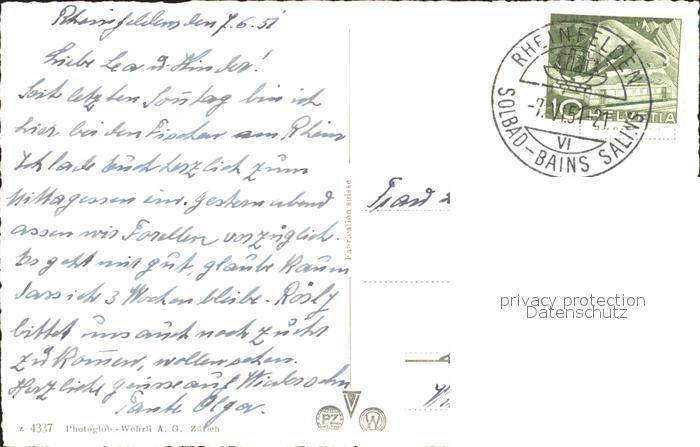 Rheinfelden, den 7.6.51
Liebe Lea u. Kinder!
Seit letzten Sonntag bin ich
hier bei den Fischer am Rhein
Ich lade Euch herzlich zum
Mittagessen ein. gestern abend
assen wir Forellen vorzüglich.
Es geht mir gut, glaube kaum
dass ich 3 Wochen bleibe. Rösly
bittet uns auch noch
zu kommen, wollen sehen.
Herzliche grüsse auf Wiedersehn
Tante Olga.
z 4337 Photoglob-Wehrli A. G. Zürich
Fabrication suisse
PZ
W
RHEINFELDEN
-7.VI.51-21
VI
SOLBAD-BAINS SALINS
10 HELVETIA
Frau
privacy protection
Datenschutz